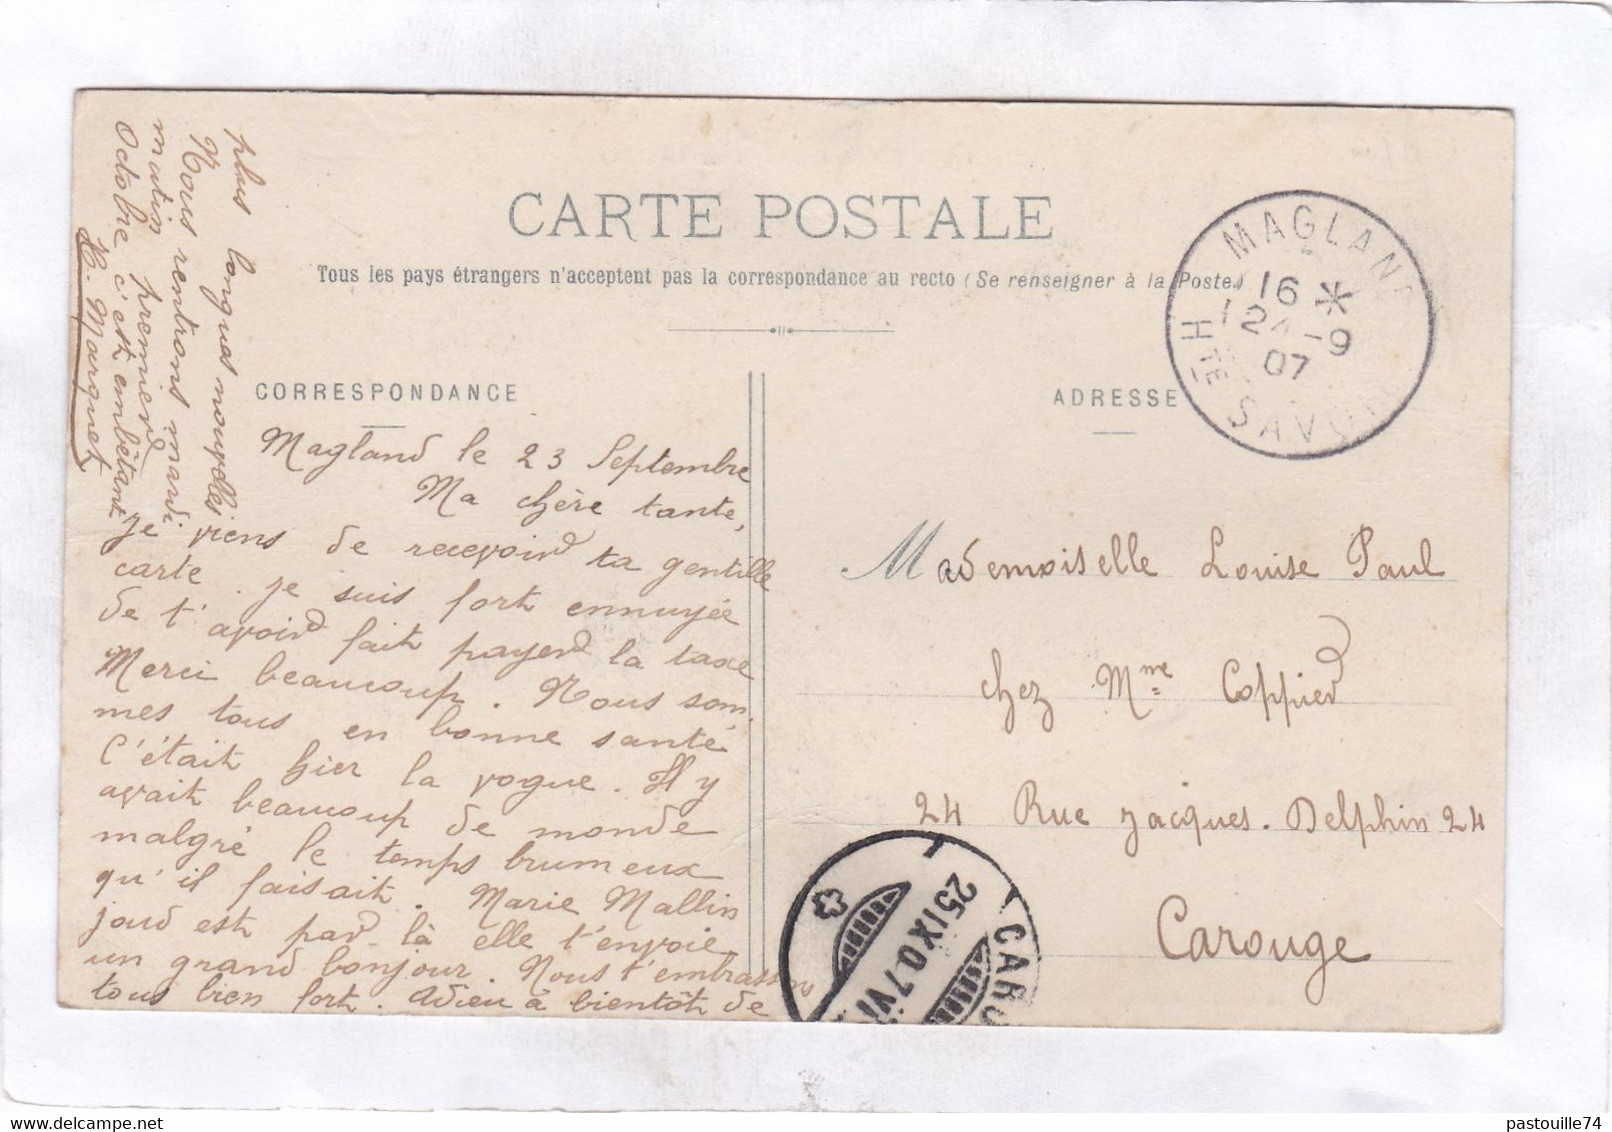 CARTE POSTALE
Tous les pays étrangers n'acceptent pas la correspondance au recto (Se renseigner à la Poste)
CORRESPONDANCE
Magland le 23 Septembre
Ma chère tante,
je viens de recevoir ta gentille
carte. je suis fort ennuyée
de t'avoir fait payer la taxe
Merci beaucoup. Nous som
mes tous en bonne santé
C'était hier la vogue. Il y
avait beaucoup de monde
malgré le temps brumeux
qu'il faisait. Marie Mallin
joud est par là elle t'envoie
un grand bonjour. Nous t'embrassons
tous bien fort. Adieu à bientôt de
plus longues nouvelles
Nous rentrons mardi
matin premier
Octobre c'est embêtant
H. Marquet
ADRESSE
Mademoiselle Louise Paul
chez Mme Coppier
24 Rue jacques. Delphin 24
Carouge
MAGLAND
16 *
24-9
07
HTE SAVOIE
CARO
25 IX 07 VI
pastouille74